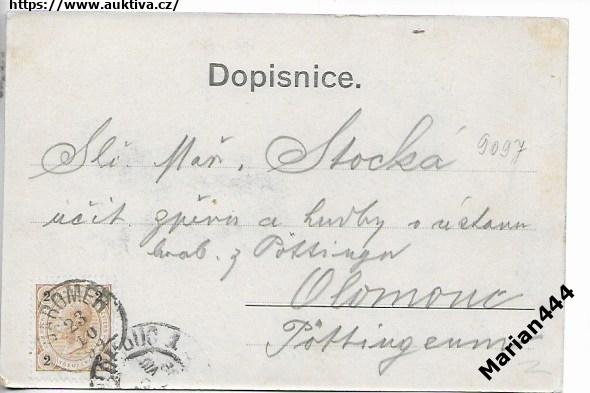 https://www.auktiva.cz/
Dopisnice.
Slč. Mař. Stocká
9097
učit. zpěvu a hudby v ústavu
hrab. z Pöttingu
Olomouc
Pöttingeum
2 2
JAROMĚŘ
23
10
2 2
Marian444